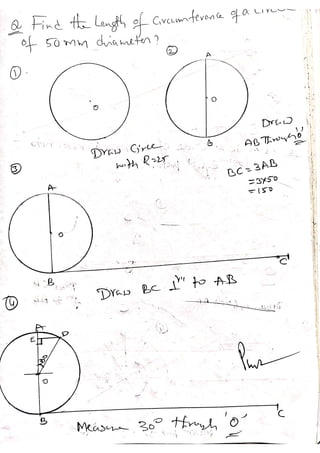 Q Find the Length of Circumferance of a Circle
of 50mm diameter?
① ②
A
O
B
O
Draw Circe
with R=25
Draw
AB Through 'O'
BC = 3AB
= 3x50
= 150
③
A
O
B
C
Draw BC ⊥r to AB
④
A
E
D
30°
O
B
C
Measure 30° through 'O'